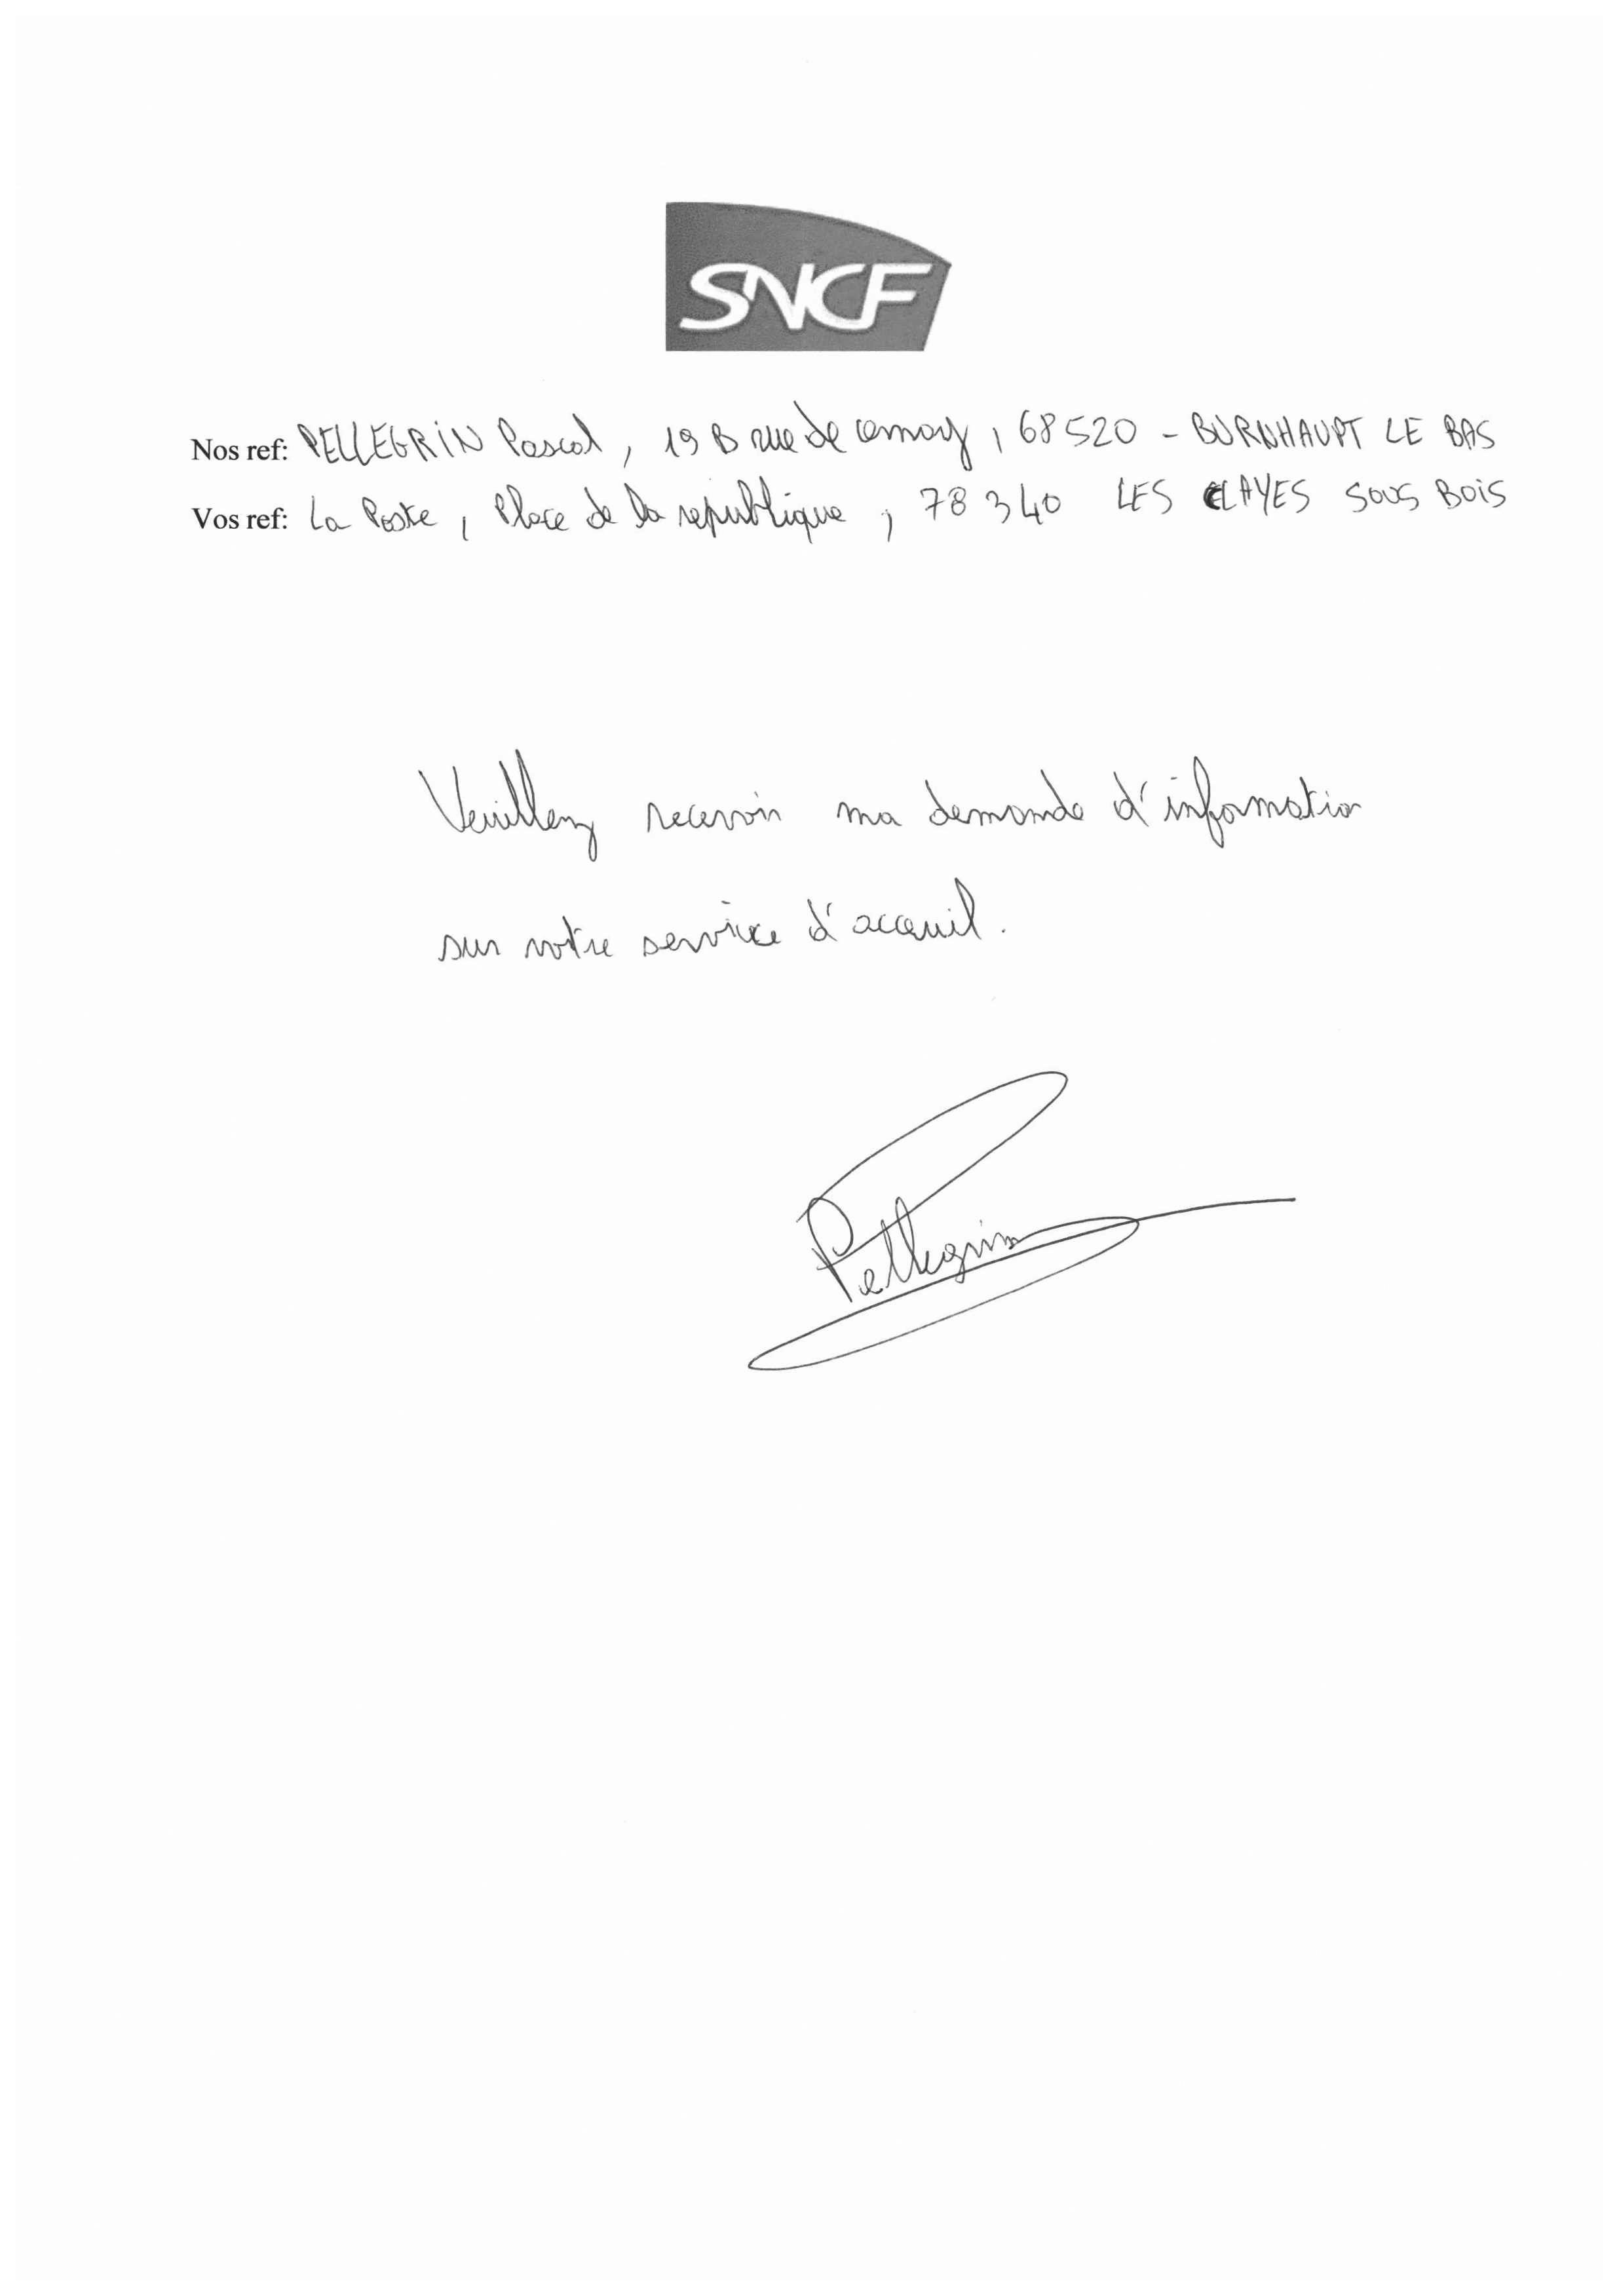 SNCF
Nos ref: PELLEGRIN Pascal, 19 B rue de cernay, 68520 - BURNHAUPT LE BAS
Vos ref: La Poste, Place de la republique, 78 340 LES CLAYES SOUS BOIS
Veuillez recevoir ma demande d'information
sur votre service d'acceuil.
Pellegrin